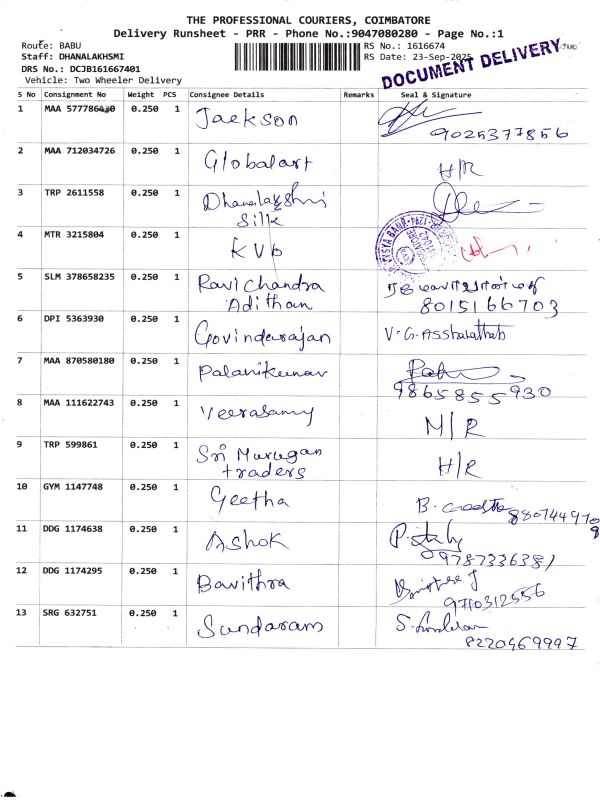 THE PROFESSIONAL COURIERS, COIMBATORE
Delivery Runsheet - PRR - Phone No.:9047080280 - Page No.:1
Route: BABU
RS No.: 1616674
Staff: DHANALAKHSMI
RS Date: 23-Sep-2025
DRS No.: DCJB161667401
Vehicle: Two Wheeler Delivery
DOCUMENT DELIVERY
S No Consignment No Weight PCS Consignee Details Remarks Seal & Signature
1 MAA 577786430 0.250 1 Jackson
9025377856
2 MAA 712034726 0.250 1 Globalart H/R
3 TRP 2611558 0.250 1 Dhanalakshmi
Silk
4 MTR 3215804 0.250 1 KVb
5 SLM 378658235 0.250 1 Ravi Chandra
Adithan 8015166703
6 DPI 5363930 0.250 1 Govindarajan V.G.
7 MAA 870580180 0.250 1 Palanikumar
9865855930
8 MAA 111622743 0.250 1 Veerasamy M/R
9 TRP 599861 0.250 1 Sri Murugan
traders H/R
10 GYM 1147748 0.250 1 Geetha B.
11 DDG 1174638 0.250 1 Ashok P.
09787336381
12 DDG 1174295 0.250 1 Bavithra
9710312556
13 SRG 632751 0.250 1 Sundaram S.
8220469997